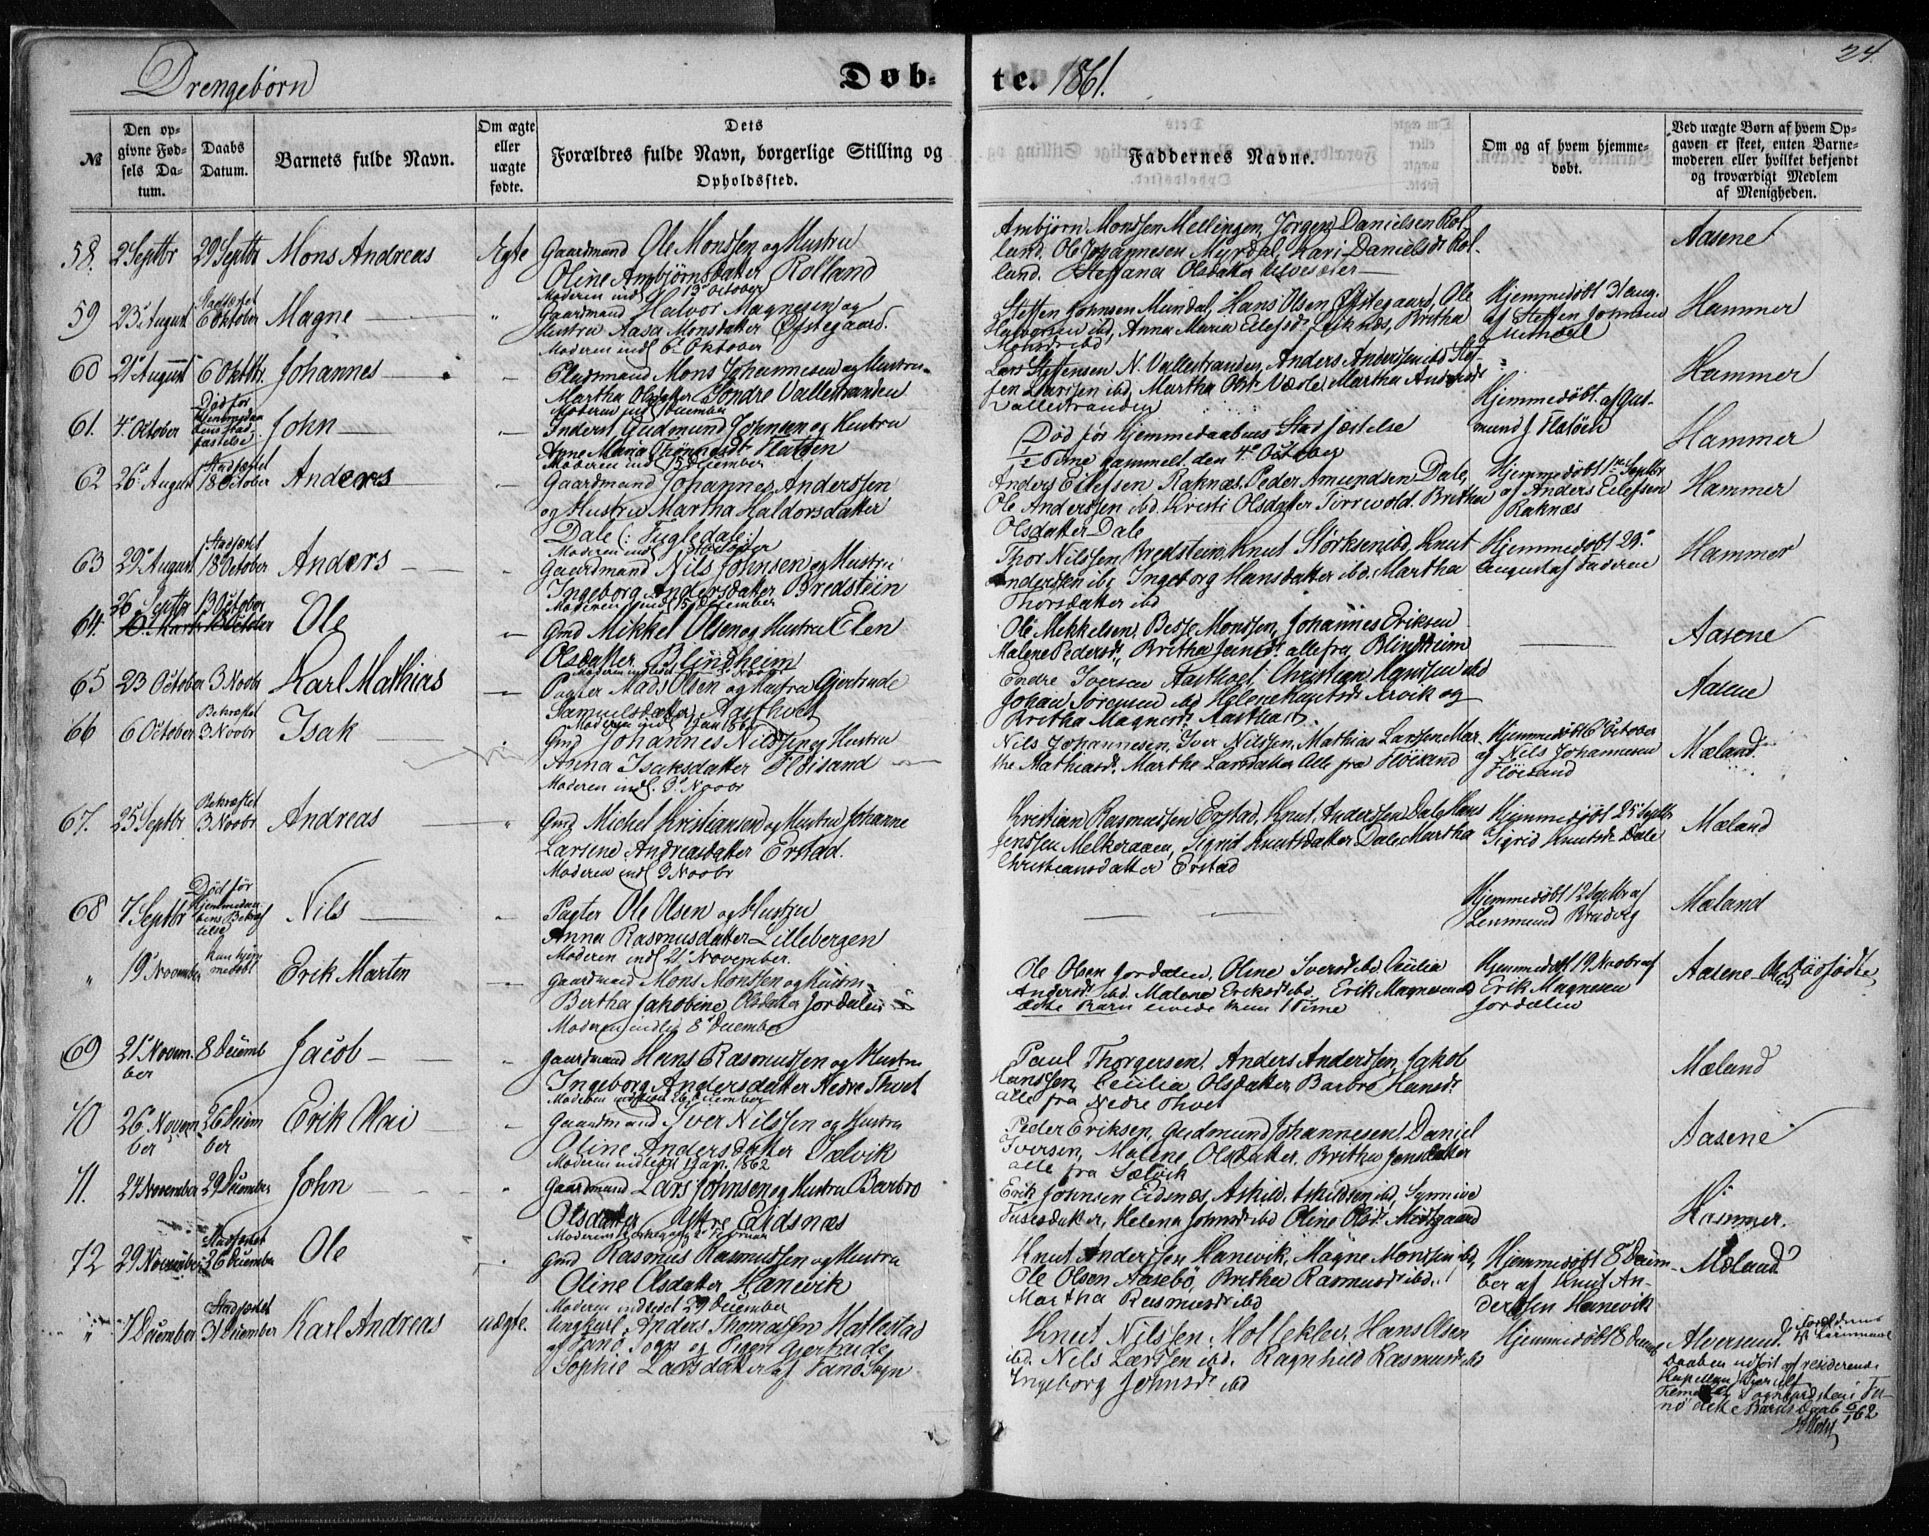 24.
Drengebørn
Døb-te. 1861.
№
Den opgivne Fødsels Datum.
Daabs Datum.
Barnets fulde Navn.
Om ægte eller uægte fødte.
Dets Forældres fulde Navn, borgerlige Stilling og Opholdssted.
Faddernes Navne.
Om og af hvem hjemmedøbt.
Ved uægte Børn af hvem Opgaven er skeet, enten Barnemoderen eller hvilket bekjendt og troværdigt Medlem af Menigheden.
58. 2 Septbr 29 Septbr Mons Andreas Ægte Gaardmand Ole Monssen og Hustru
Oline Ambjørnsdatter Rolland
Moderen indl 13 October
Ambjørn Monssen Mellingen, Jørgen Danielsen Rol-
land. Ole Johannesen Myrdal, Kari Danielsdr Rol-
land. Steffana Olsdatter
Aasene
59 23 August Stadfæstet 6 Oktober Magne " Gaardmand Halvor Magnesen og
Hustru Aasa Monsdatter Øfstegaard.
Moderen indl 6 Oktober
Steffen Johnsen Mundal, Hans Olsen Øfstegaard, Ole
Halvorsen ibd, Anna Maria Eilefsdr Eiknæs, Britha
Monsdr ibd
Hjemmedøbt 31 aug.
af Steffen Johnsen
Mundal
Hammer
60 21 August 6 Oktbr. Johannes Pladsmand Mons Johannesen og Hustru
Martha Olsdatter Søndre Vallestranden
Moderen indl December
Lars Steffensen N. Vallestranden, Anders Anderssen ibd Stef-
fen Larssen ibd, Martha Olsdr Væde, Martha Andersdr
Vallestranden
Hammer
61. 4 October Død før Hjemmedaabens Stadfæstelse John Inderst Gudmund Johnsen og Hustru
Anne Maria Flatøen
Moderen indl 15 December
Død før Hjemmedaabens Stadfæstelse
½ Time gammelt den 4 October
Hjemmedøbt af Gud-
mund J Flatøen
Hammer
62 26 August Stadfæstet 18 October Anders Gaardmand Johannes Anderssen
og Hustru Martha Haldorsdatter
Dale (: Fugledale :)
Anders Eilefsen Raknæs, Peder Amundsen Dale,
Ole Anderssen ibd. Kristi Olsdatter Tørrvold. Britha
Olsdatter Dale
Hjemmedøbt 1 Septbr
af Anders Eilefsen
Raknæs
Hammer
63 29 August Stadfæstet 18 October Anders Gaardmand Nils Johnsen og Hustru
Ingeborg Andersdatter Bredstein
Moderen indl 15 December
Thor Nilssen Bredstein, Knut Størksen ibd, Knut
Anderssen ibd, Ingeborg Hansdatter ibd. Martha
Thorsdatter ibd
Hjemmedøbt 29
August af Faderen
Hammer
64. 26 Septbr 13 October Ole Gmd Mikkel Olsen og Hustru Elen
Olsdatter Blindheim
Ole Mekkelsen, Besse Monssen, Johannes Eriksen
Malene Pedersdr, Britha Jensdr alle fra Blindheim
Aasene
65 23 October 3 Novbr Karl Mathias Pagter Mads Olsen og Hustru Gjertrude
Samuelsdatter Aasthvet
Endre Iversen Aasthvet, Christian Knudsen ibd
Johan Sørensen ibd Helene Knutsdr Ervik og
Britha Magnesdr Aasthvet
Aasene
66 6 October Bekræftet 3 Novbr Isak Gmd Johannes Nilssen og Hustru
Anna Isaksdatter Fløisand
Moderen indl. 3 Novbr
Nils Johannesen, Iver Nilssen, Mathias Larssen, Mar-
the Mathiasdr. Marthe Larsdatter Alle fra Fløisand
Hjemmedøbt 6 October
af Nils Johannesen
Fløisand
Mæland
67. 25 Septbr Bekræftet 3 Novbr Andreas Gmd Michel Kristiansen og Hustru Johanne
Larsine Andreasdatter Erstad.
Moderen indl 3 Novbr
Kristian Rasmussen Erstad, Knut Anderssen Dale, Hans
Jenssen Melkeraaen, Sigrid Knutsdatter Dale, Martha
Christiansdatter Erstad
Hjemmedøbt 25 Septbr
af Sigrid Knutsdr Dale
Mæland
68 7 Septbr Død før Hjemmedaabens Bekræftelse Nils Pagter Ole Olsen og Hustru
Anna Rasmusdatter Lillebergen
Moderen indl 21 November.
Hjemmedøbt 12 Septbr af
Lensmand Brudvig
Mæland
" 19 November kun hjemmedøbt Erik Marten Gaardmand Mons Monssen og Hustru
Bertha Jakobine Olsdatter Jordalen
Moderen indledt 8 December
Ole Olsen Jordalen, Oline Iversdr ibd, Cecilia
Andersdr ibd. Malene Eriksdr ibd, Erik Magnesen ibd
Dette Barn levede kun 1 Time
Hjemmedøbt 19 Novbr af
Erik Magnesen
Jordalen
Aasene
69 21 November 8 Decemb Jacob Gaardmand Hans Rasmussen og Hustru
Ingeborg Andersdatter Nedre Thvet
Moderen indledt 26 December
Paul Thorgersen, Anders Anderssen, Jakob
Hanssen, Cecilia Olsdatter Barbro Hansdr
alle fra Nedre Thvet
Mæland
70 26 November 26 December Erik Gaardmand Iver Nilssen og Hustru
Oline Andersdatter Sælvik
Moderen indledt 1 Jan. 1862
Peder Eriksen, Gudmund Johannesen, Daniel
Iversen, Malene Olsdatter, Britha Jensdatter
alle fra Sælvik
Aasene
71. 24 November 29 December John Gaardmand Lars Johnsen og Hustru Barbro
Olsdatter Eidsnæs
Erik Johnsen Eidsnæs, Askild Askildsen ibd, Synnive
Helena Johnsdr ibd Oline Olsdr Midtgaard
Hammer.
72 29 November Stadfæstet 26 December Ole Gmd Rasmus Rasmussen og Hustru
Oline Olsdatter Hanevik
Moderen indledet 29 December
Knut Anderssen Hanevik, Magne Monssen ibd,
Ole Olsen Aasebø, Britha Rasmusdr ibd,
Martha Rasmusdr ibd
Hjemmedøbt 8 Decem-
ber af Knut An-
derssen Hanevik
Mæland
" 7 December Stadfæstet 31 December Karl Andreas uægte. Ungkarl Anders Thomassen Hatlestad
af Fanø Sogn og Pigen Gjertrude
Sophie Larsdatter af Fanø Sogn
Knut Nilssen Hollekleiv, Hans Olsen
ibd. Nils Larssen ibd. Ragnhild Rasmusdr ibd
Ingeborg Johnsdr ibd
Hjemmedøbt 8 Decemb
Alversund.
Daaben udført af residerende
Kapellan